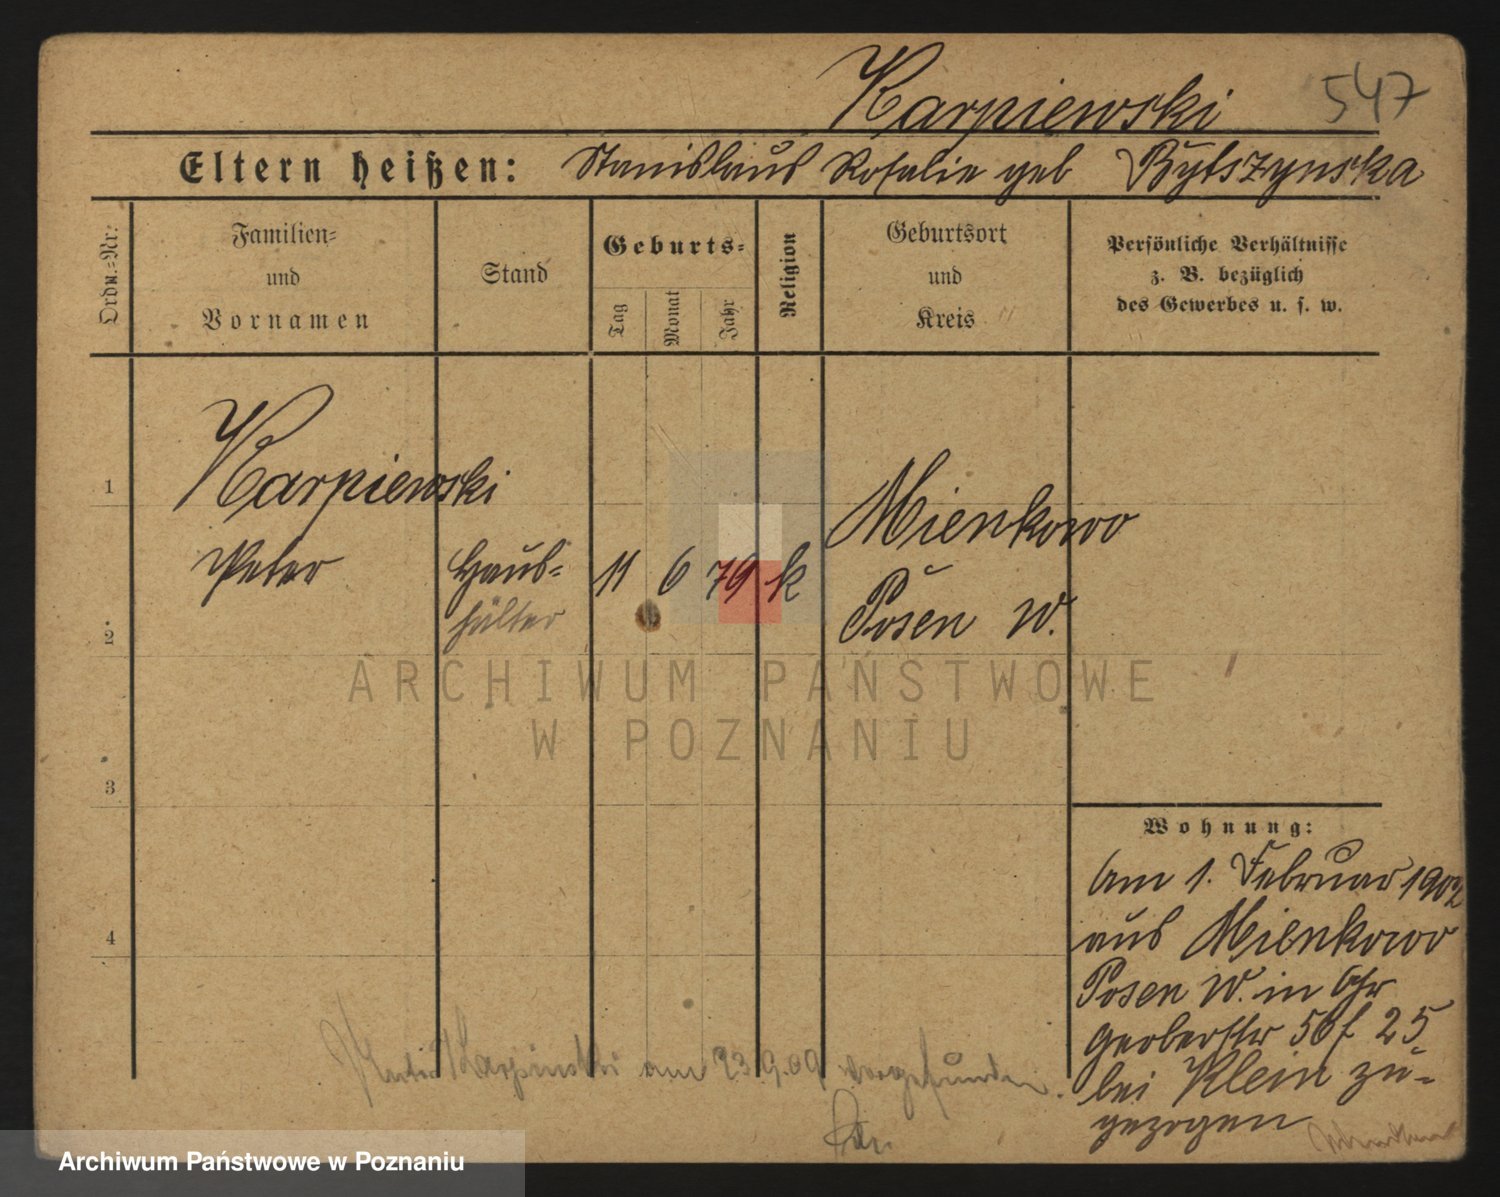 547
Karpiewski
Eltern heißen: Stanislaus Rosalie geb Bylszynska
Ordn.-Nr.
Familien-
und
Vornamen
Stand
Geburts-
Tag
Monat
Jahr
Religion
Geburtsort
und
Kreis
Persönliche Verhältnisse
z. B. bezüglich
des Gewerbes u. s. w.
1
Karpiewski
Mienkowo
Peter Haus- 11 6 79 k
hälter
Posen W.
2
ARCHIWUM PAŃSTWOWE
W POZNANIU
3
Wohnung:
Am 1. Februar 1902
aus Mienkowo
4
Posen W. in Gr
gerberstr 50f 25
bei Klein zu-
gezogen
am 23.9.09 vorgefunden.
Archiwum Państwowe w Poznaniu